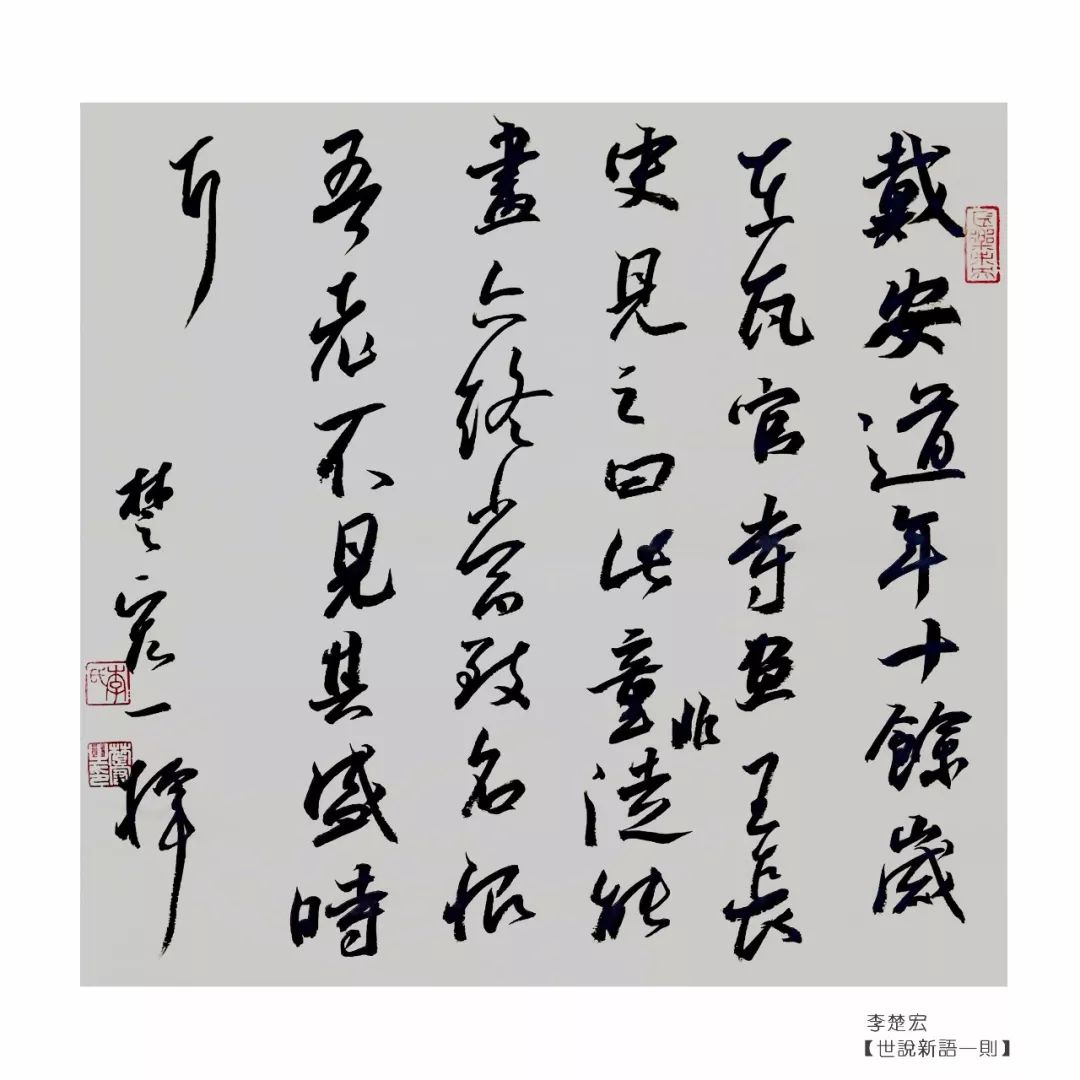 戴安道年十餘歲
在瓦官寺畫王長
史見之曰此童非徒能
畫亦終當致名恨
吾老不見其盛時
耳
楚宏一揮
李氏
李楚宏
【世說新語一則】